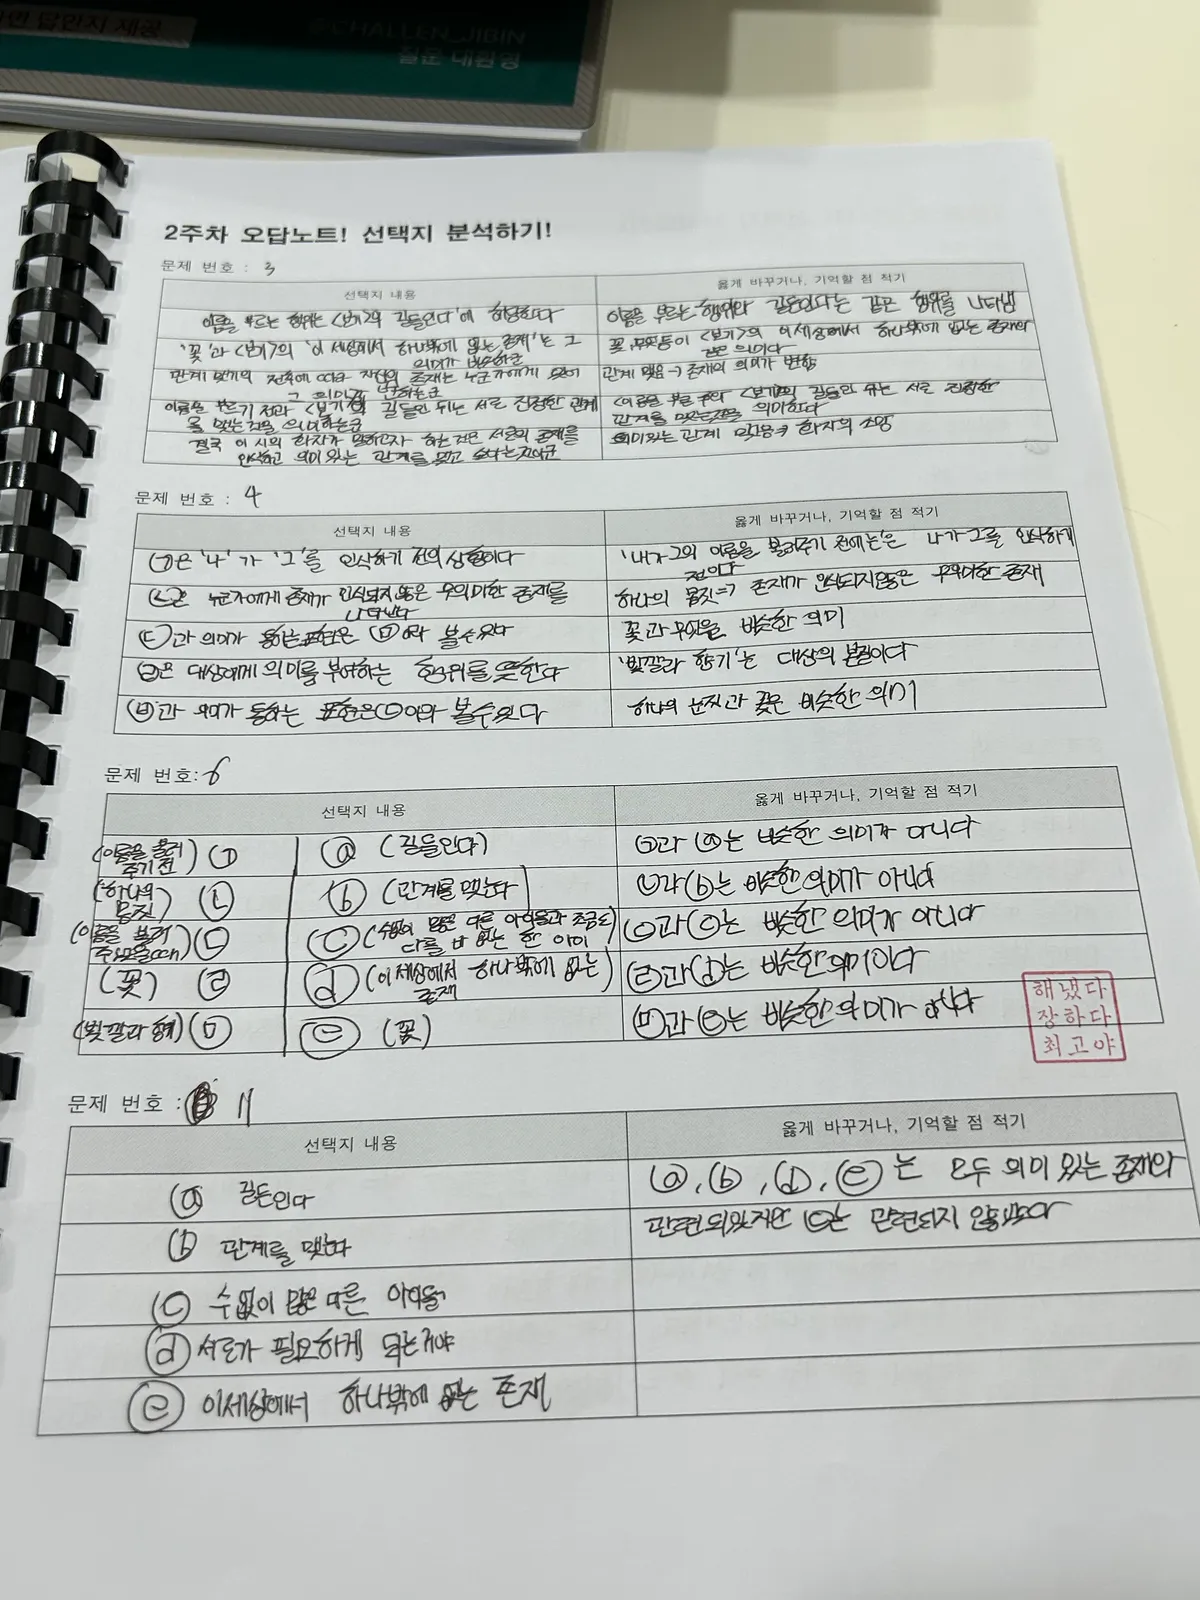 답안지 제공
@CHALLEN_JIBIN
질문 대환영
2주차 오답노트! 선택지 분석하기!
문제 번호 : 3
선택지 내용
옳게 바꾸거나, 기억할 점 적기
이름을 부르는 행위는 <보기>의 길들인다'에 해당한다
이름을 부르는 행위와 길들인다는 같은 행위를 나타냄
'꽃'과 <보기>의 '이 세상에서 하나밖에 없는 존재'는 그
의미가 비슷하군
꽃, 무엇 등이 <보기>의 이 세상에서 하나밖에 없는 존재와
같은 의미다
관계 맺기의 전후에 따라 자신의 존재는 누군가에게 있어
그 의미가 변하는군
관계 맺음 → 존재의 의미가 변함
이름을 부르기 전과 <보기>의 길들인 뒤는 서로 진정한 관계
를 맺는 것을 의미하는군
<이름을 부른 후와 <보기>의 길들인 뒤는 서로 진정한
관계를 맺는 것을 의미한다
결국 이 시의 화자가 말하고자 하는 것은 서로의 존재를
인식하고 의미 있는 관계를 맺고 싶다는 것이군
의미있는 관계 맺음 → 화자의 소망
문제 번호 : 4
선택지 내용
옳게 바꾸거나, 기억할 점 적기
㉠은 '나'가 '그'를 인식하기 전의 상황이다
'내가 그의 이름을 불러주기 전에는'은 나가 그를 인식하기
전이다
㉡은 누군가에게 존재가 인식되지 않은 무의미한 존재를
나타낸다
하나의 몸짓=> 존재가 인식되지 않은 무의미한 존재
㉢과 의미가 통하는 표현은 ㉤이라 볼 수 있다
꽃과 무엇을 비슷한 의미
㉣은 대상에게 의미를 부여하는 행위를 뜻한다
'빛깔과 향기'는 대상의 본질이다
㉥과 의미가 통하는 표현은 ㉢이라 볼수있다
하나의 눈짓과 꽃은 비슷한 의미
문제 번호: 6
선택지 내용
옳게 바꾸거나, 기억할 점 적기
(이름을 불러
주기 전) ㉠ ⓐ (길들인다)
㉠과 ⓐ는 비슷한 의미가 아니다
(하나의
몸짓) ㉡ ⓑ (관계를 맺는다)
㉡과 ⓑ는 비슷한 의미가 아니다
(이름을 불러
주었을 때) ㉢ ⓒ (수없이 많은 다른 아이들과 조금도
다를 바 없는 한 아이)
㉢과 ⓒ는 비슷한 의미가 아니다
(꽃) ㉣ ⓓ (이 세상에서 하나밖에 없는)
존재
㉣과 ⓓ는 비슷한 의미이다
(빛깔과 향기) ㉤ ⓔ (꽃)
㉤과 ⓔ는 비슷한 의미가 아니다
해냈다
장하다
최고야
문제 번호 : 11
선택지 내용
옳게 바꾸거나, 기억할 점 적기
ⓐ 길든인다
ⓐ, ⓑ, ⓓ, ⓔ는 모두 의미 있는 존재와
ⓑ 관계를 맺는다
관련되있지만 ⓒ는 관련되지 않는다
ⓒ 수 없이 많은 다른 아이들
ⓓ 서로가 필요하게 되는거야
ⓔ 이세상에서 하나밖에 없는 존재